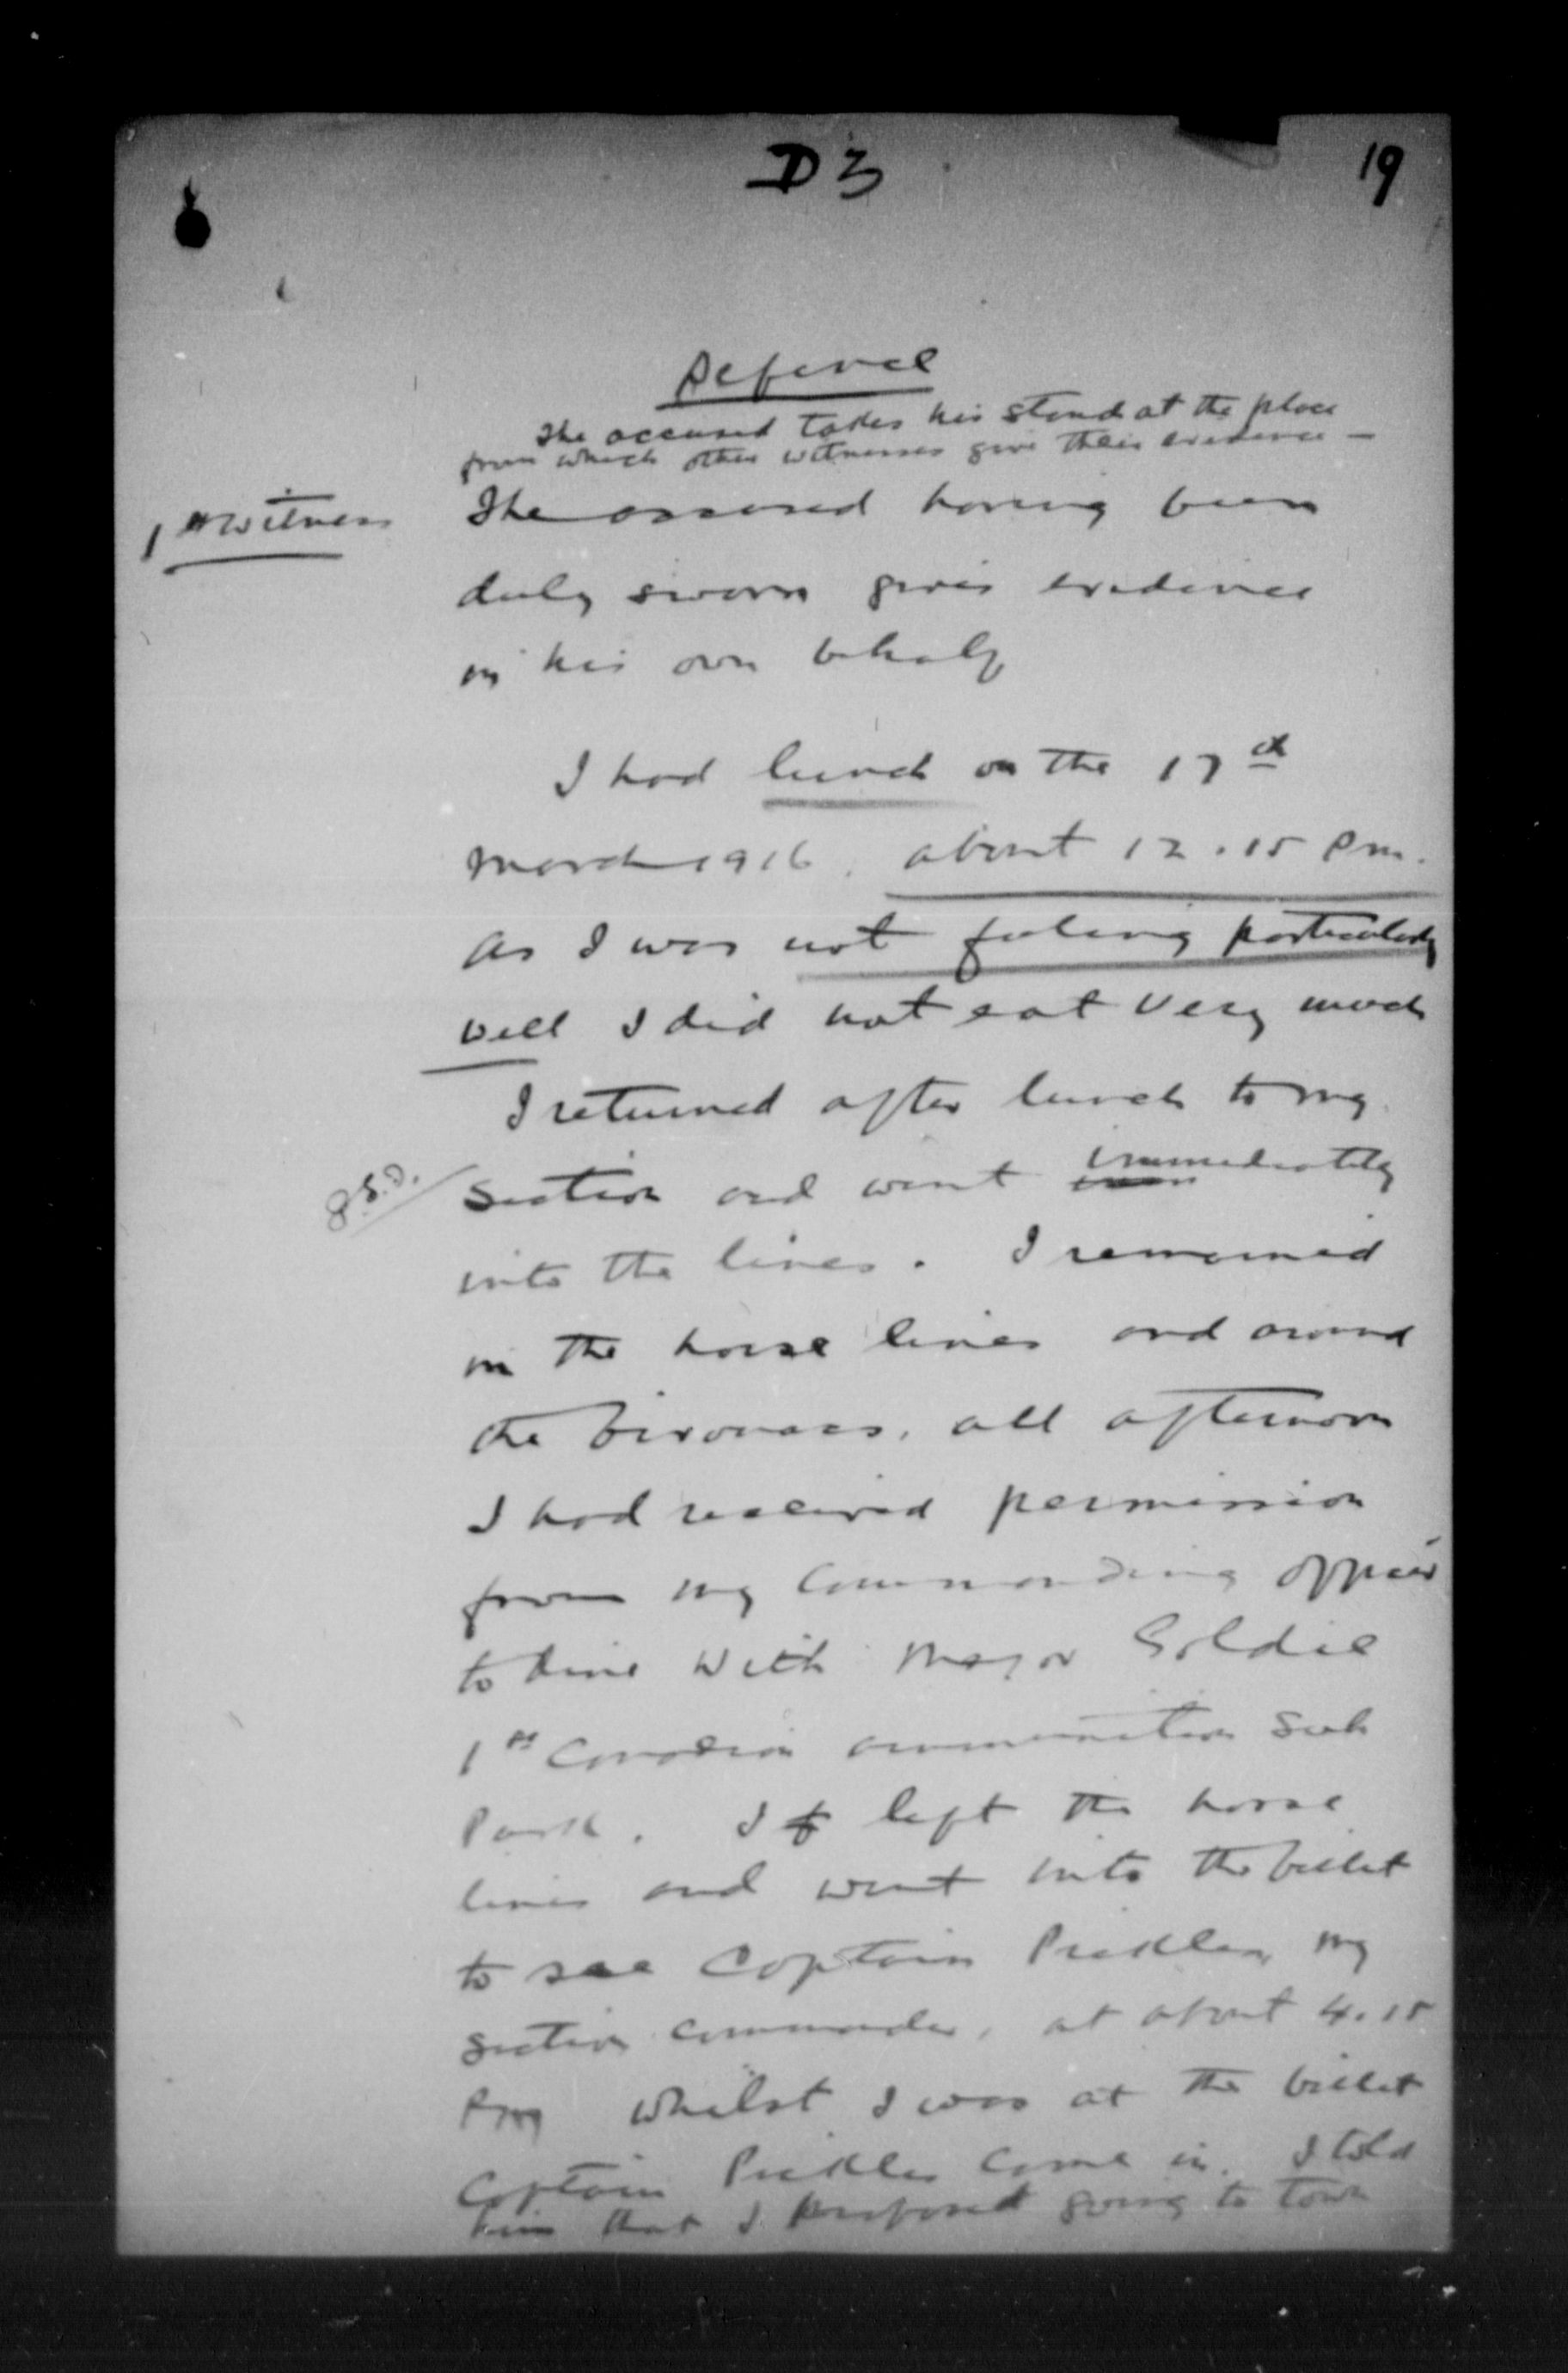 D3
19
Defence
The accused takes his stand at the place
from which other witnesses give their evidence —
1st witness
The accused having been
duly sworn gives evidence
in his own behalf
I had lunch on the 17th
March 1916, about 12.15 pm.
As I was not feeling particularly
well I did not eat very much
I returned after lunch to my
section and went immediately
into the lines. I remained
in the horse lines and around
the bivouacs, all afternoon
I had received permission
from my Commanding Officer
to dine with Major Goldie
1st Canadian Ammunition Sub
Park. I left the horse
lines and went into the billet
to see Captain Pickles, my
section commander, at about 4.15
pm whilst I was at the billet
Captain Pickles came in. I told
him that I proposed going to town